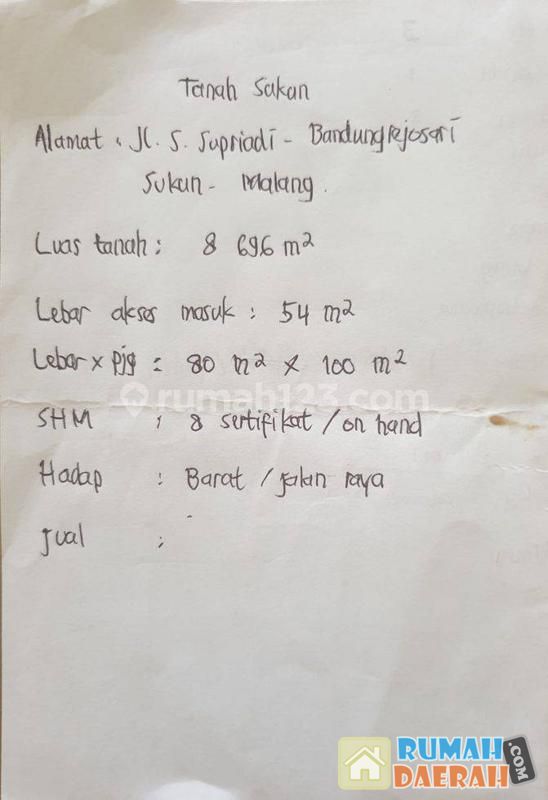 Tanah Sukun
Alamat : Jl. S. Supriadi - Bandungrejosari
Sukun - Malang.
Luas tanah : 8 696 m²
Lebar akses masuk : 54 m²
Lebar x pjg = 80 m² x 100 m²
rumah123.com
SHM : 8 sertifikat / on hand
Hadap : Barat / jalan raya
Jual :
RUMAH
DAERAH.COM